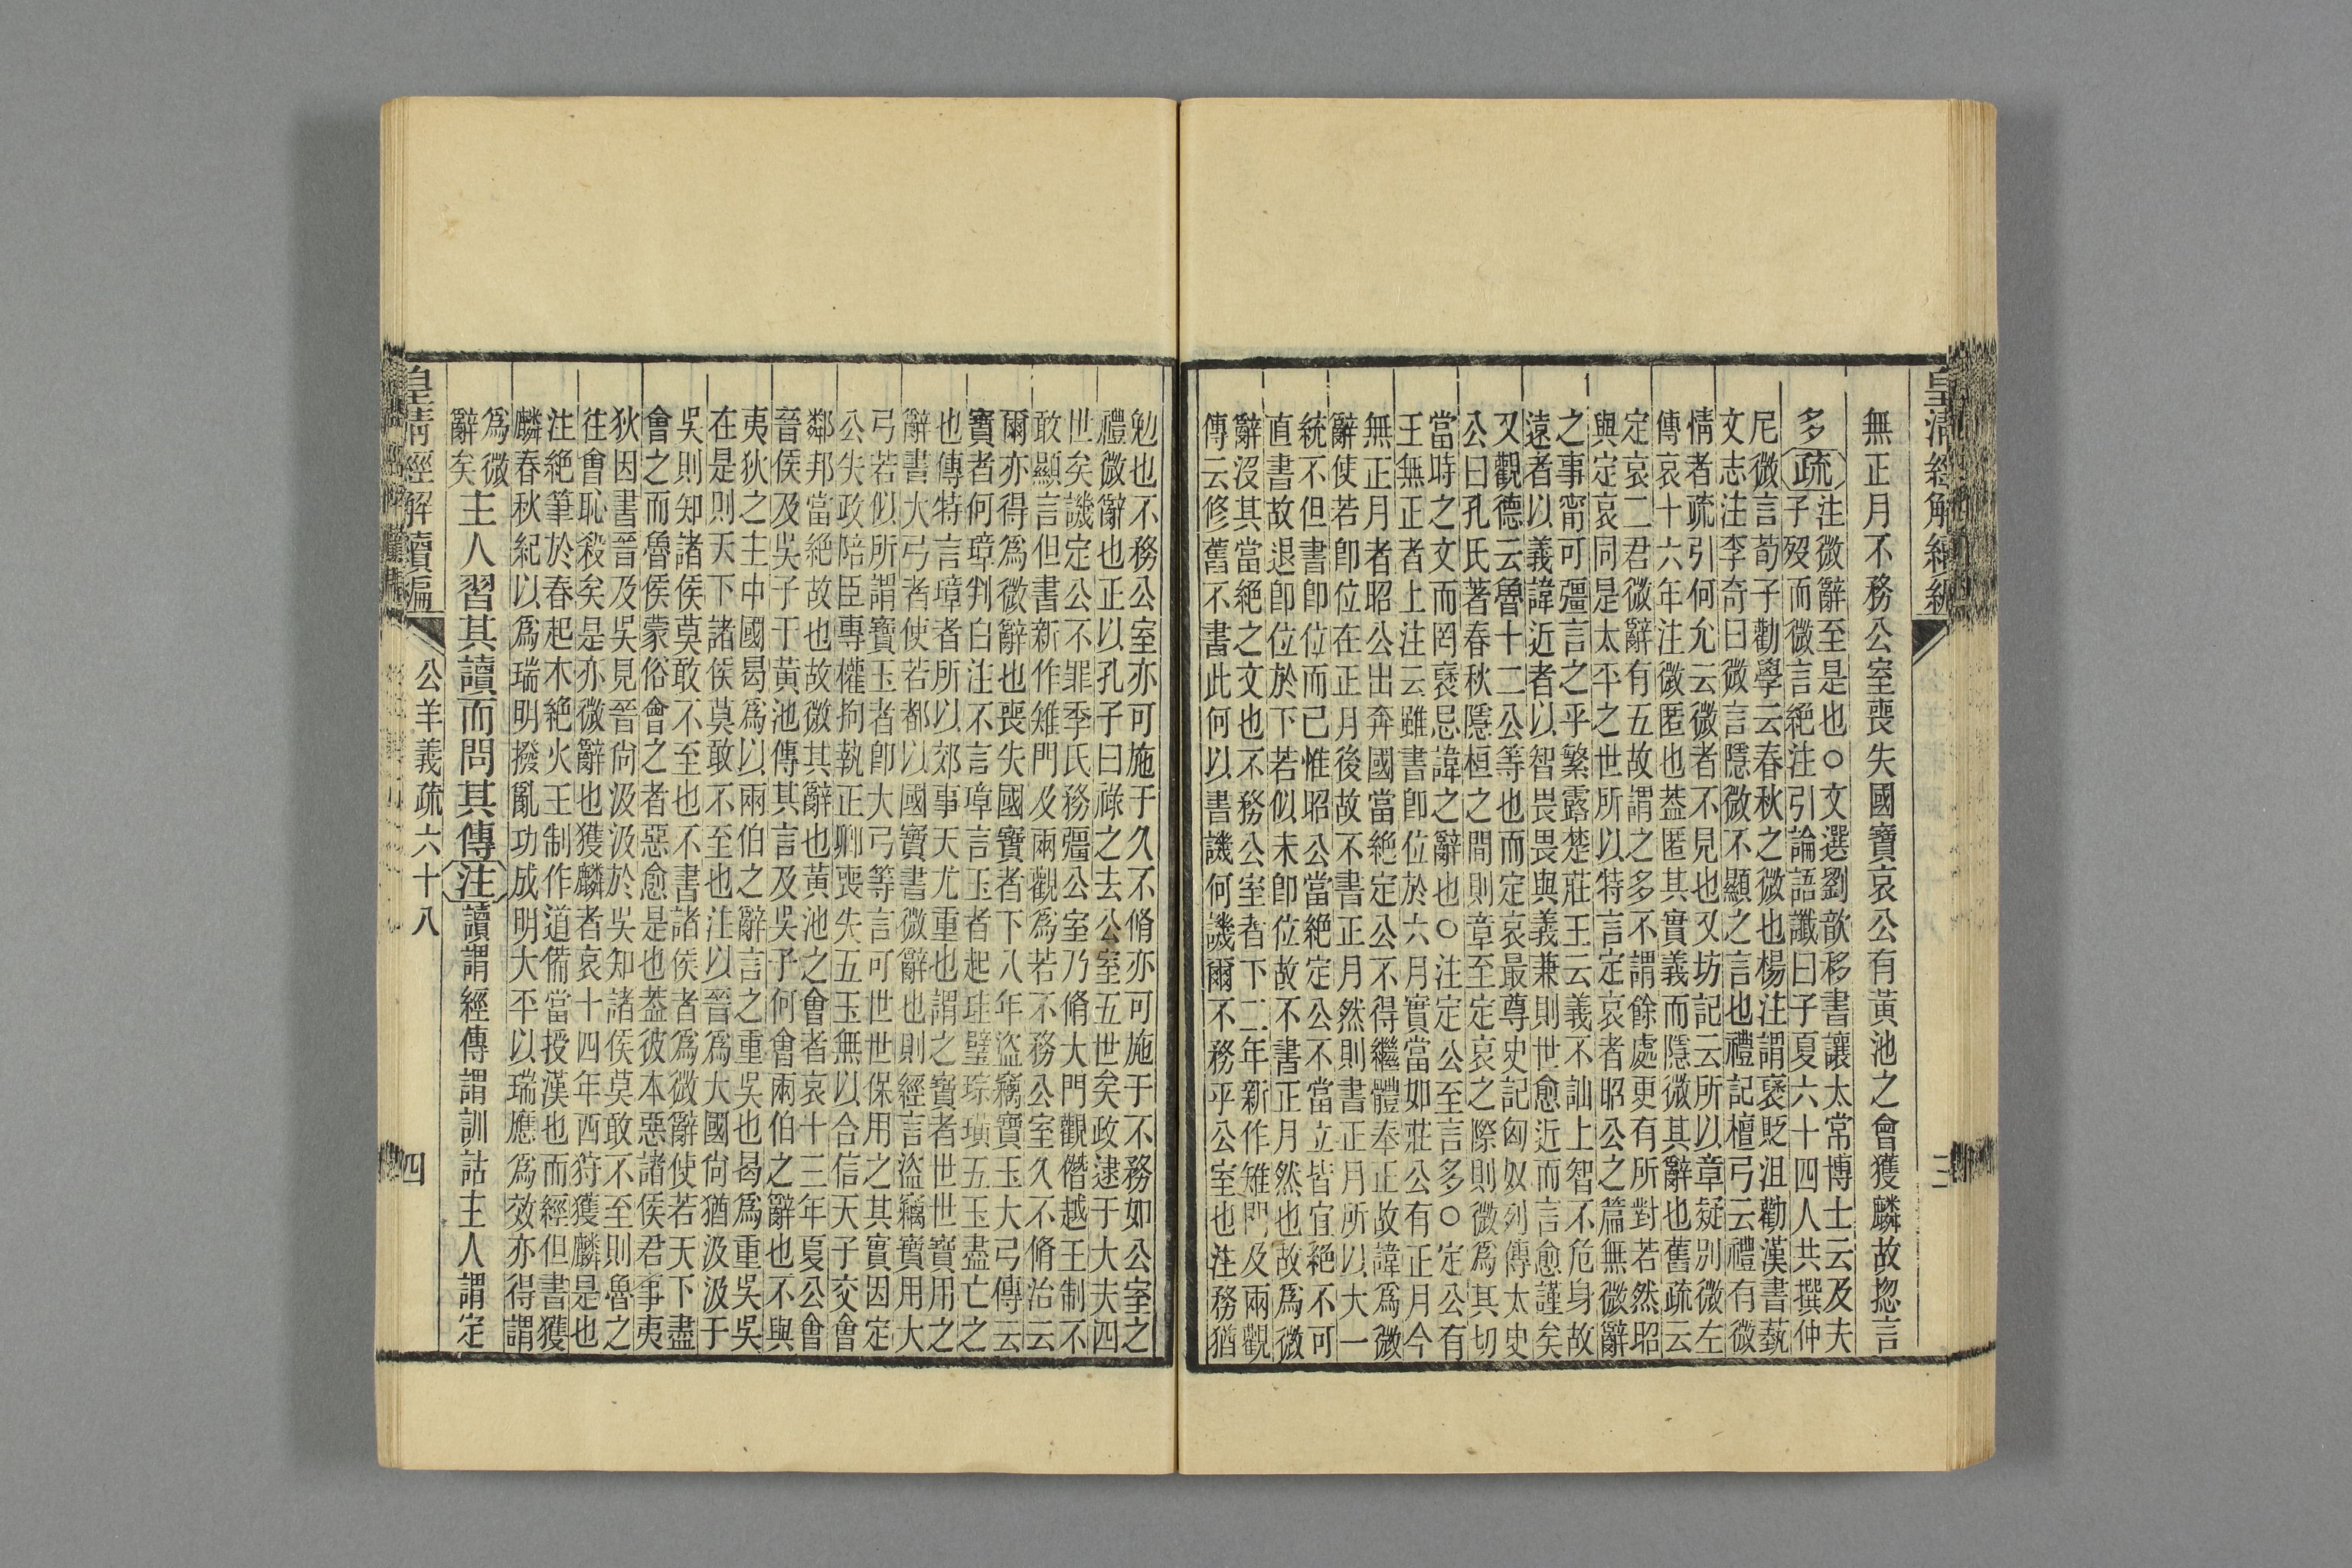 皇清經解續編
三
無正月不務公室喪失國寶哀公有黃池之會獲麟故揔言
多疏
注微辭至是也○文選劉歆移書讓太常博士云及夫
子歿而微言絕注引論語讖曰子夏六十四人共撰仲
尼微言荀子勸學云春秋之微也楊注謂褒貶沮勸漢書藝
文志注李奇曰微言隱微不顯之言也禮記檀弓云禮有微
情者疏引何允云微者不見也又坊記云所以章疑別微左
傳哀十六年注微匿也葢匿其實義而隱微其辭也舊疏云
定哀二君微辭有五故謂之多不謂餘處更有所對若然昭
與定哀同是太平之世所以特言定哀者昭公之篇無微辭
之事甯可彊言之乎繁露楚莊王云義不訕上智不危身故
遠者以義諱近者以智畏畏與義兼則世愈近而言愈謹矣
又觀德云魯十二公等也而定哀最尊史記匈奴列傳太史
公曰孔氏著春秋隱桓之間則章至定哀之際則微爲其切
當時之文而罔褒忌諱之辭也○注定公至言多○定公有
王無正者上注云雖書卽位於六月實當如莊公有正月今
無正月者昭公出奔國當絕定公不得繼體奉正故諱爲微
辭使若卽位在正月後故不書正月然則書正月所以大一
統不但書卽位而已惟昭公當絕定公不當立皆宜絕不可
直書故退卽位於下若似未卽位故不書正月然也故爲微
辭沒其當絕之文也不務公室者下二年新作雉門及兩觀
傳云修舊不書此何以書譏何譏爾不務乎公室也注務猶
勉也不務公室亦可施于久不脩亦可施于不務如公室之
禮微辭也正以孔子曰祿之去公室五世矣政逮于大夫四
世矣譏定公不罪季氏務彊公室乃脩大門觀僭越王制不
敢顯言但書新作雉門及兩觀爲若不務公室久不脩治云
爾亦得爲微辭也喪失國寶者下八年盜竊寶玉大弓傳云
寶者何璋判白注不言璋言玉者起珪璧琮璜五玉盡亡之
也傳特言璋者所以郊事天尤重也謂之寶者世世寶用之
辭書大弓者使若都以國寶書微辭也則經言盜竊寶用大
弓若似所謂寶玉者卽大弓等言可世世保用之其實因定
公失政陪臣專權拘執正卿喪失五玉無以合信天子交會
鄰邦當絕故也故微其辭也黃池之會者哀十三年夏公會
晉侯及吳子于黃池傳其言及吳子何會兩伯之辭也不與
夷狄之主中國曷爲以兩伯之辭言之重吳也曷爲重吳吳
在是則天下諸侯莫敢不至也注以晉爲大國尚猶汲汲于
吳則知諸侯莫敢不至也不書諸侯者爲微辭使若天下盡
會之而魯侯蒙俗會之者惡愈是也葢彼本惡諸侯君事夷
狄因書晉及吳見晉尚汲汲於吳知諸侯莫敢不至則魯之
往會恥殺矣是亦微辭也獲麟者哀十四年西狩獲麟是也
注絕筆於春起木絕火王制作道備當授漢也而經但書獲
麟春秋紀以爲瑞明撥亂功成明大平以瑞應爲效亦得謂
爲微
辭矣
主人習其讀而問其傳注讀謂經傳謂訓詁主人謂定
皇清經解續編
公羊義疏六十八
四